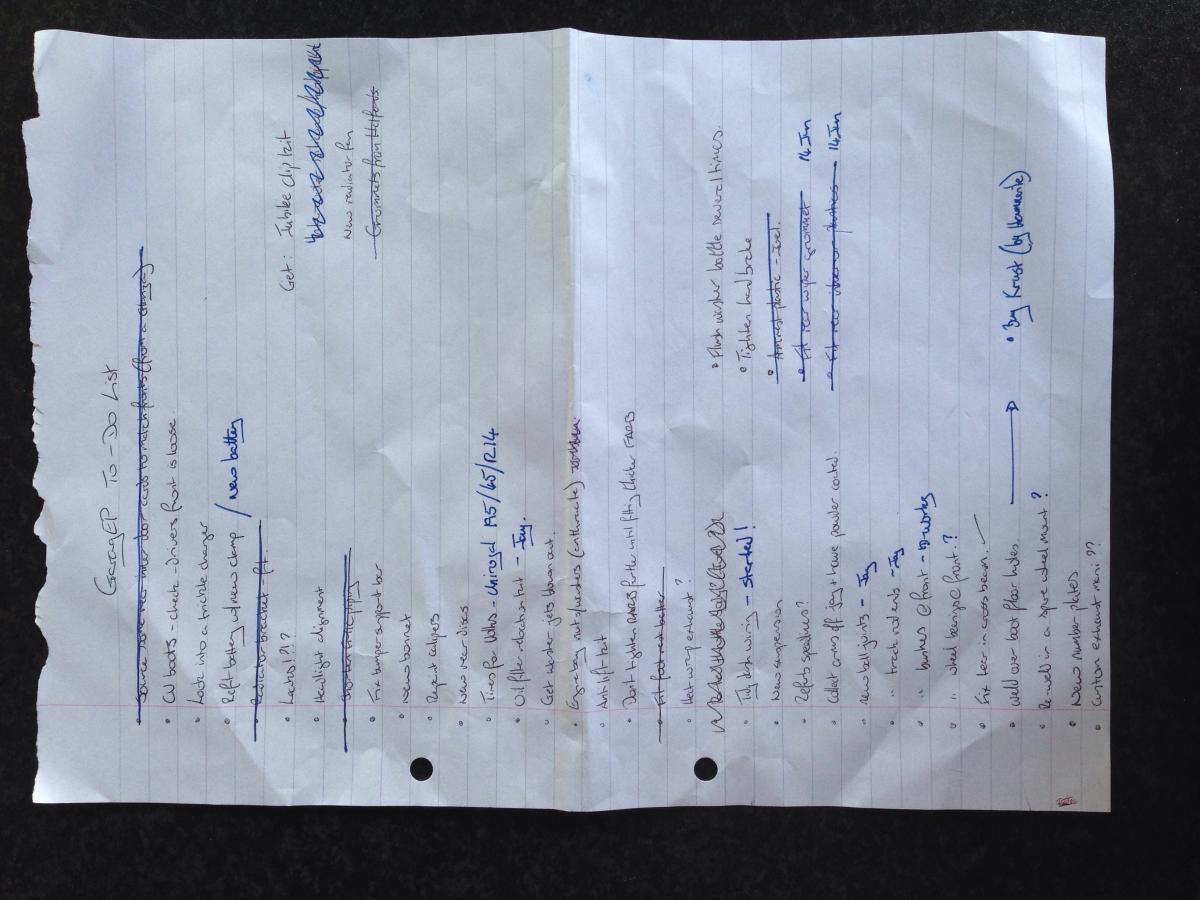 Garage EP To-Do List
Source some rear inner door cards to match fronts (from a
• CV boots - check - drivers front is loose
• Look into a minidisc changer
• Refit battery w/ new clamp / New battery
• Radiator bracket - fit
• Locks!?!
• Headlight alignment
• Fix bumper support bar
• New bonnet
• Repaint calipers
• New rear discs
• Tires for - Uniroyal 195/65/R14
• Oil filter relocation kit - Jay.
• Get washer jets blown out
• Engine bay nut/washers (anthracite)
• Antilift kit
• Don't tighten further until fitting thicker
• Fit foot rest better
• Heat wrap exhaust?
• Tidy dash wiring - started!
• New suspension
• Refurb speedlines?
• Collect arms off Jay + have powder coated.
• New ball joints - Jay
• " track rod ends - Jay
• " bushes @ front - ID works
• " wheel bearings @ front?
• Fix tear in cross beam.
• Weld over boot floor holes.
• Re-weld in a spare wheel mount?
• New number plates
• Custom exhaust mani??
Get: Jubilee clip kit
New radiator fan
Grommets from Halfords
• Flush washer bottle several times.
• Tighten hand brake
• Armrest plastic - Jewel.
• Fit rear wiper grommet 14 Jan
• Fit rear 14 Jan
• Buy Krust (by Hammerite)